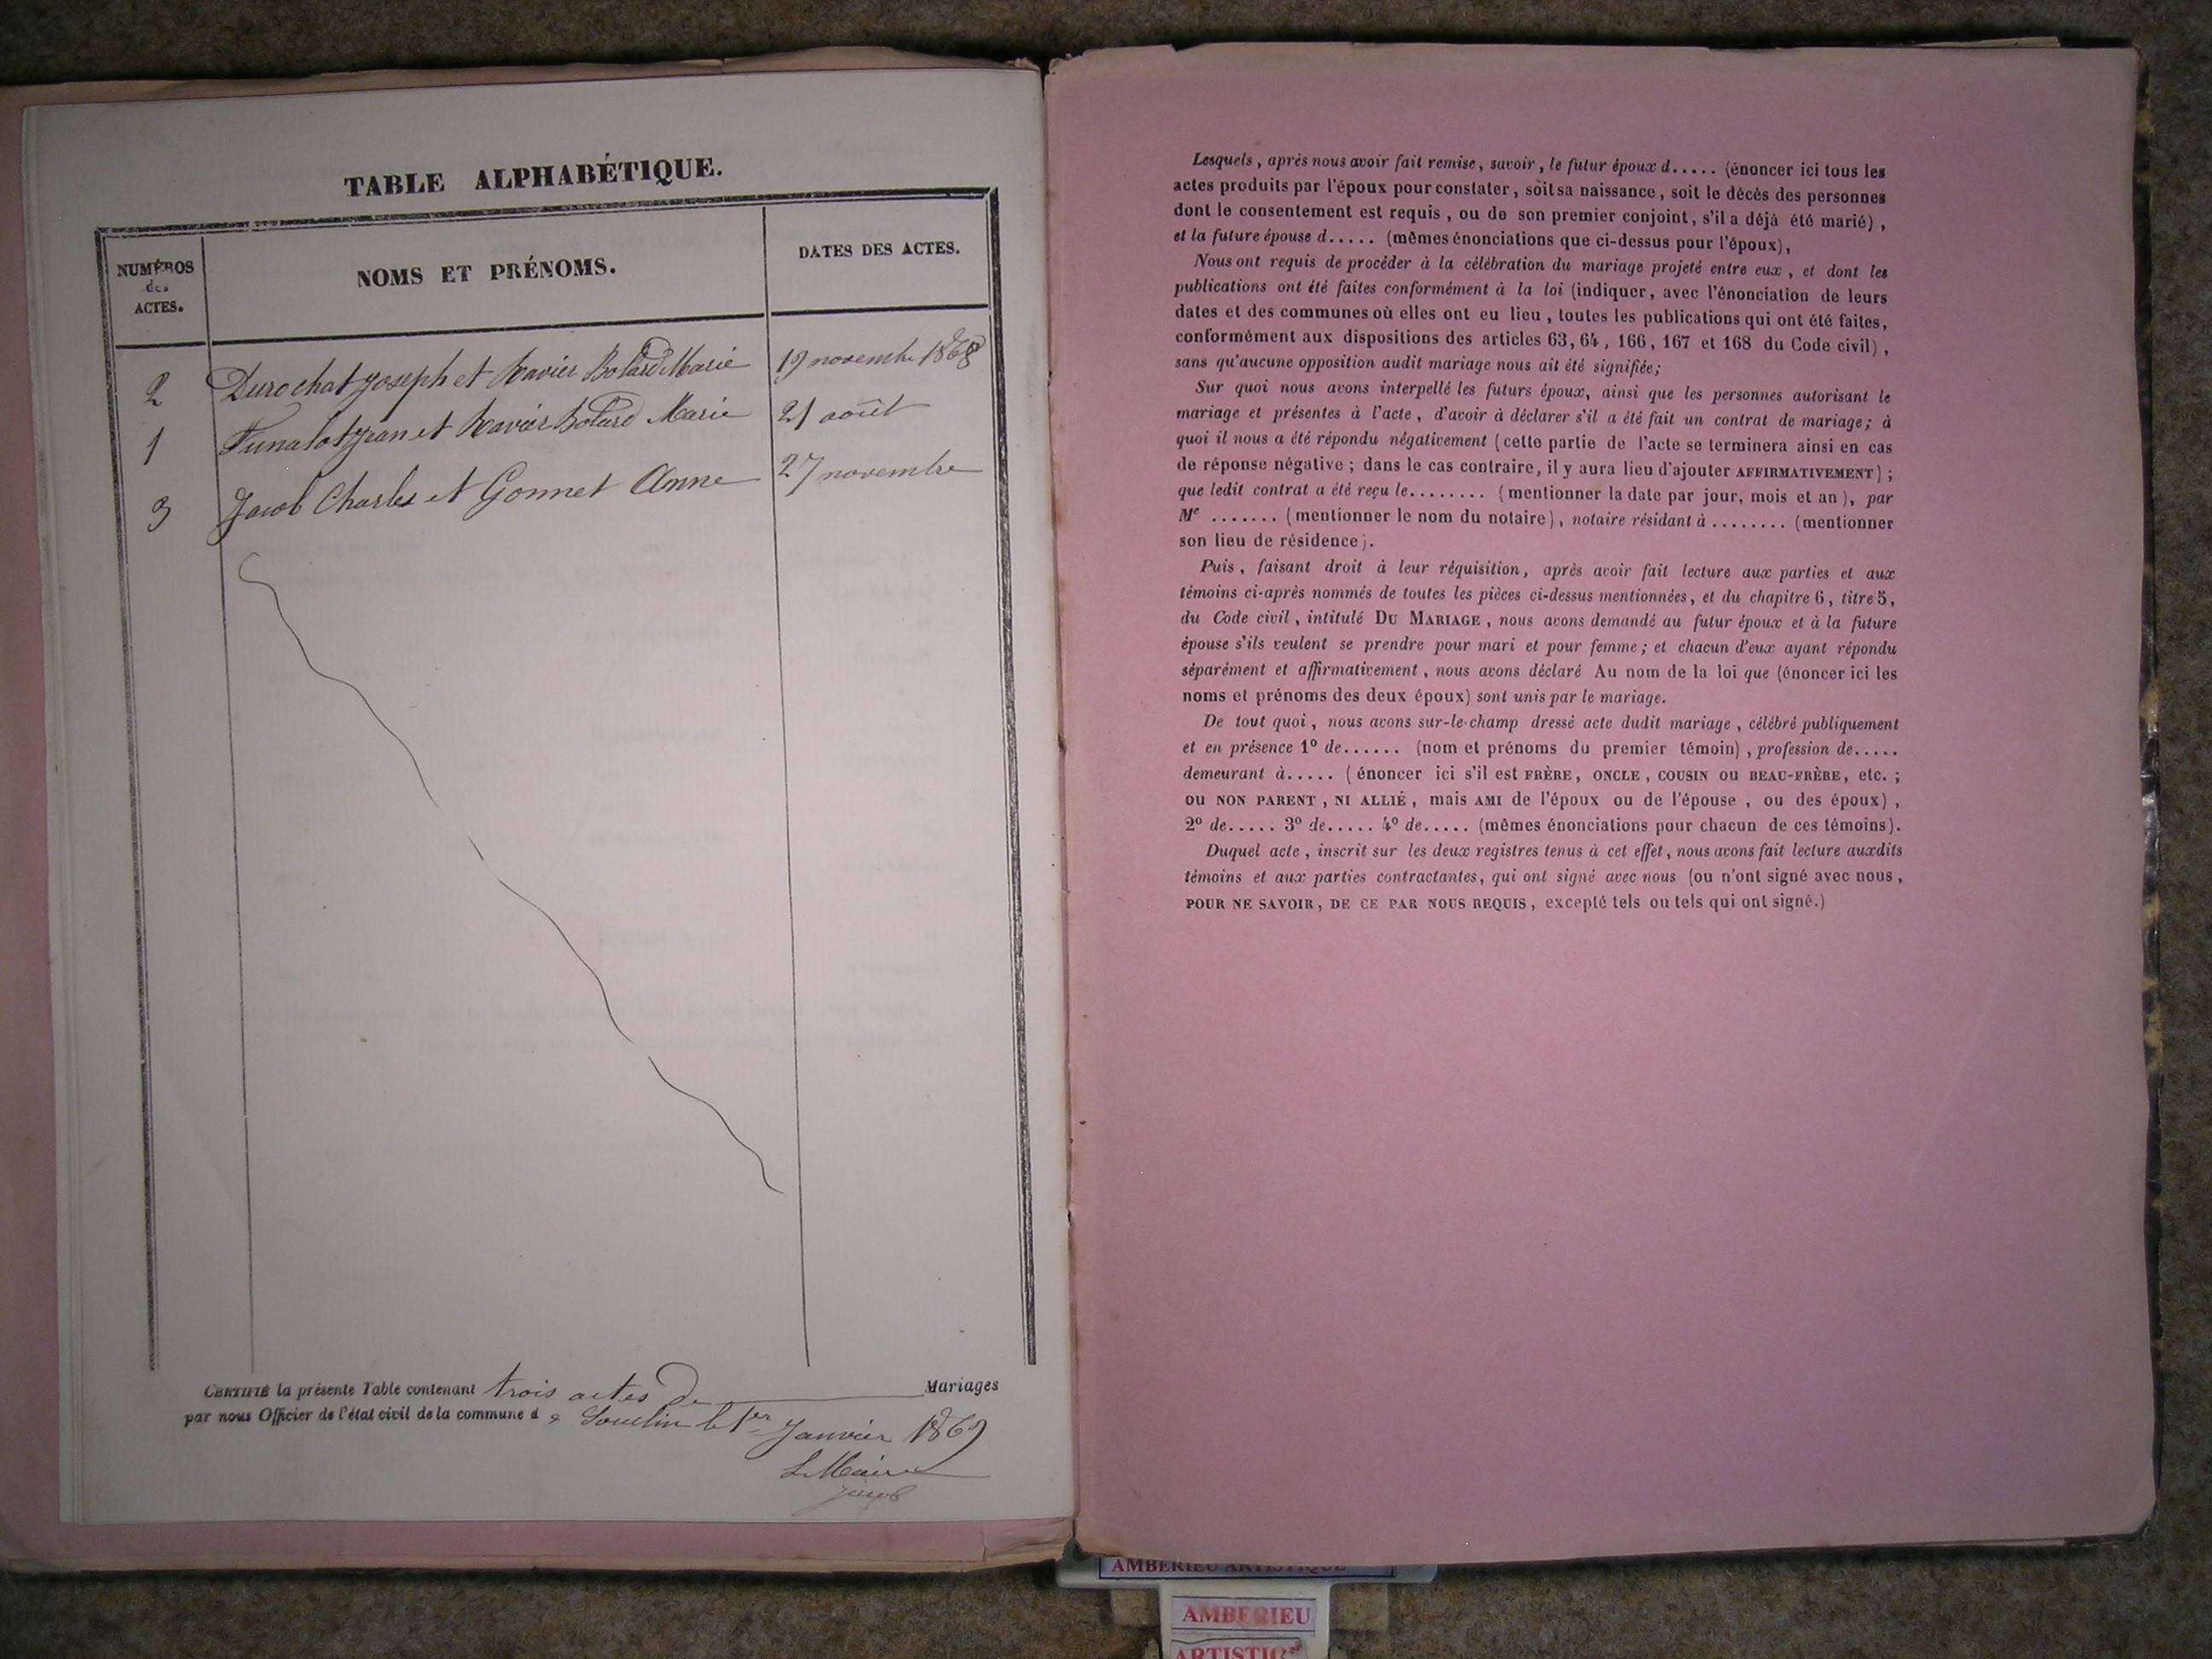 TABLE ALPHABÉTIQUE.
NUMÉROS
des
ACTES.
NOMS ET PRÉNOMS.
DATES DES ACTES.
2 Durochat Joseph et Ravier Bolard Marie 19 novembre 1868
1 Funalot Jean et Ravier Bolard Marie 21 août
3 Jacob Charles et Gonnet Anne 27 novembre
CERTIFIÉ la présente Table contenant trois actes de Mariages
par nous Officier de l'état civil de la commune de Souclin le 1er Janvier 1869
Le Maire
Jacob
Lesquels, après nous avoir fait remise, savoir, le futur époux d..... (énoncer ici tous les
actes produits par l'époux pour constater, soit sa naissance, soit le décès des personnes
dont le consentement est requis, ou de son premier conjoint, s'il a déjà été marié),
et la future épouse d..... (mêmes énonciations que ci-dessus pour l'époux),
Nous ont requis de procéder à la célébration du mariage projeté entre eux, et dont les
publications ont été faites conformément à la loi (indiquer, avec l'énonciation de leurs
dates et des communes où elles ont eu lieu, toutes les publications qui ont été faites,
conformément aux dispositions des articles 63, 64, 166, 167 et 168 du Code civil),
sans qu'aucune opposition audit mariage nous ait été signifiée;
Sur quoi nous avons interpellé les futurs époux, ainsi que les personnes autorisant le
mariage et présentes à l'acte, d'avoir à déclarer s'il a été fait un contrat de mariage; à
quoi il nous a été répondu négativement (cette partie de l'acte se terminera ainsi en cas
de réponse négative; dans le cas contraire, il y aura lieu d'ajouter AFFIRMATIVEMENT);
que ledit contrat a été reçu le........ (mentionner la date par jour, mois et an), par
Me ....... (mentionner le nom du notaire), notaire résidant à ........ (mentionner
son lieu de résidence).
Puis, faisant droit à leur réquisition, après avoir fait lecture aux parties et aux
témoins ci-après nommés de toutes les pièces ci-dessus mentionnées, et du chapitre 6, titre 5,
du Code civil, intitulé DU MARIAGE, nous avons demandé au futur époux et à la future
épouse s'ils veulent se prendre pour mari et pour femme; et chacun d'eux ayant répondu
séparément et affirmativement, nous avons déclaré Au nom de la loi que (énoncer ici les
noms et prénoms des deux époux) sont unis par le mariage.
De tout quoi, nous avons sur-le-champ dressé acte dudit mariage, célébré publiquement
et en présence 1o de...... (nom et prénoms du premier témoin), profession de.....
demeurant à..... (énoncer ici s'il est FRÈRE, ONCLE, COUSIN ou BEAU-FRÈRE, etc.;
ou NON PARENT, NI ALLIÉ, mais AMI de l'époux ou de l'épouse, ou des époux),
2o de..... 3o de..... 4o de..... (mêmes énonciations pour chacun de ces témoins).
Duquel acte, inscrit sur les deux registres tenus à cet effet, nous avons fait lecture auxdits
témoins et aux parties contractantes, qui ont signé avec nous (ou n'ont signé avec nous,
POUR NE SAVOIR, DE CE PAR NOUS REQUIS, excepté tels ou tels qui ont signé.)
AMBERIEU ARTISTIQUE
AMBERIEU
ARTISTIQUE